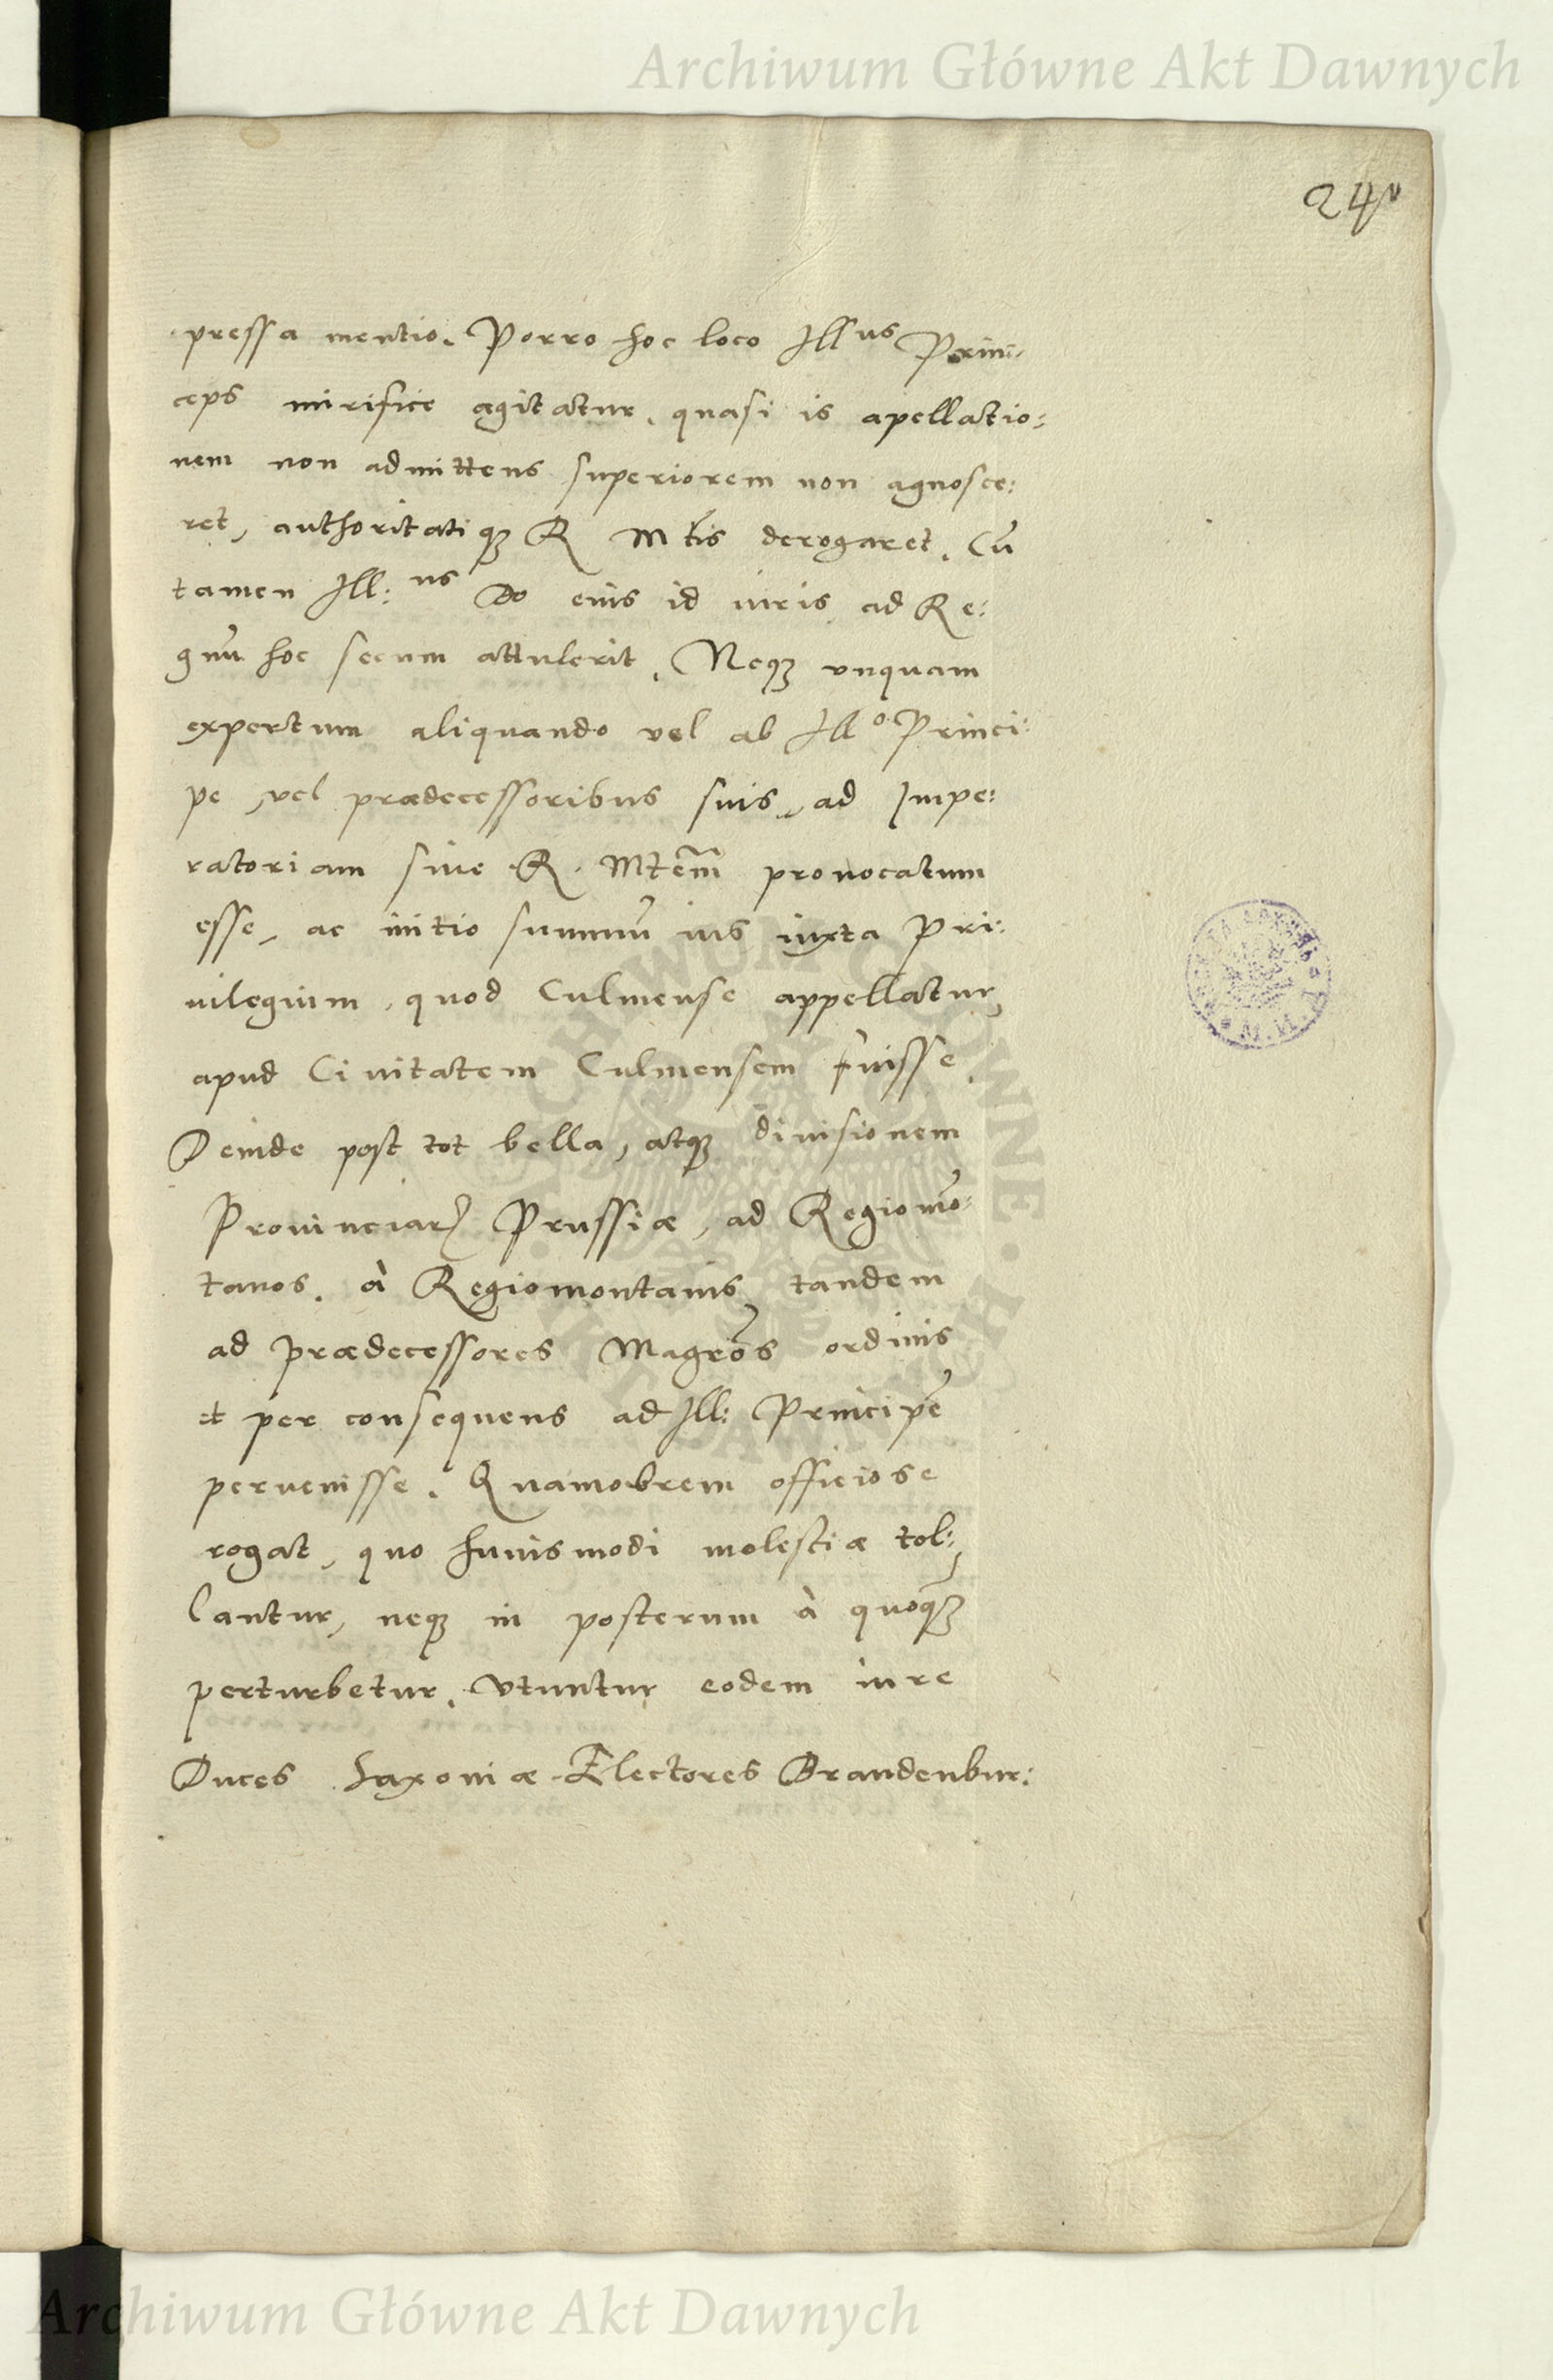 Archiwum Główne Akt Dawnych
24
pressa mentio. Porro hoc loco Ill^us Prin-
ceps mirifice agitatur, quasi is apellatio:
nem non admittens superiorem non agnosce:
ret, authoritatiq3 R Mtis derogaret. Cū
tamen Ill:^us Do eius id iuris ad Re:
gnū hoc secum attulerit. Neq3 vnquam
expertum aliquando vel ab Ill^o Princi:
pe, vel prædecessoribus suis, ad Impe:
ratoriam siue R. Mtem̄ prouocatum
esse, ac initio summū ius iuxta Pri:
uilegium, quod Culmense appellatur,
apud Ciuitatem Culmensem fuisse.
Deinde post tot bella, atq3 diuisionem
Prouinciarꝝ Prussiæ, ad Regiomō:
tanos. à Regiomontanis tandem
ad prædecessores Magrōs ordinis
et per consequens ad Ill: Principē
peruenisse. Quamobrem officiose
rogat, quo huiusmodi molestiæ tol:
lantur, neq3 in posterum à quoq̄3
perturbetur. Vtuntur eodem iure
Duces Saxoniæ Electores Brandenbur:
Archiwum Główne Akt Dawnych